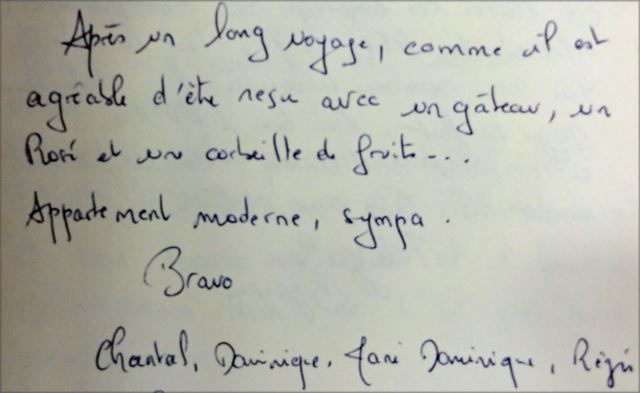 Après un long voyage, comme il est
agréable d'être resu avec un gâteau, un
Rosé et une corbeille de fruits...
Appartement moderne, sympa.
Bravo
Chantal, Dominique, Marie Dominique, Régis